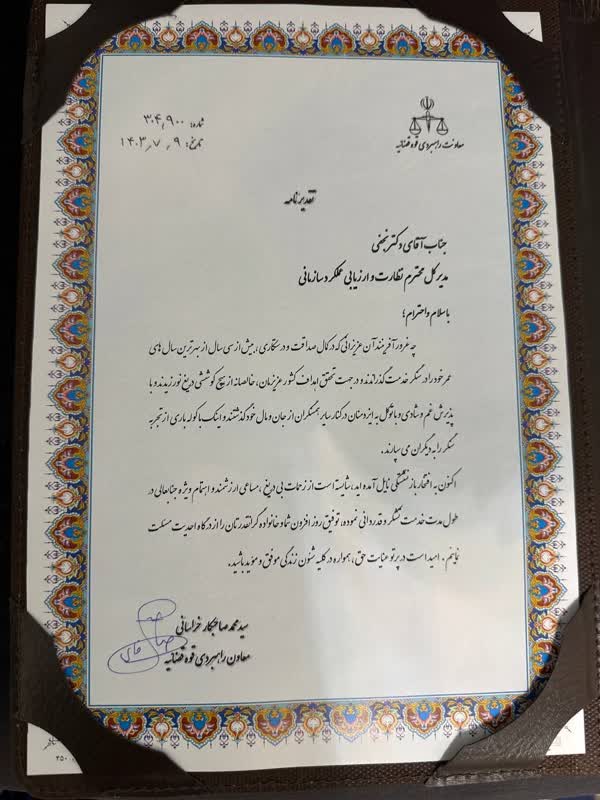 شماره: ۳۰۴٫۹۰۰
تاریخ: ۱۴۰۳٫۷٫۹
معاونت راهبردی قوه قضائیه
تقدیرنامه
جناب آقای دکتر نجفی
مدیرکل محترم نظارت و ارزیابی عملکرد سازمانی
با سلام و احترام؛
چه غرورآفرینند آن عزیزانی که در کمال صداقت و درستکاری، بیش از سی سال از بهترین سال های
عمر خود را در سنگر خدمت گذراندند و در جهت تحقق اهداف کشور عزیزمان، خالصانه از هیچ کوششی دریغ نورزیدند و با
پذیرش غم و شادی و با توکل به ایزد منان در کنار سایر همسنگران از جان و مال خود گذشتند و اینک با کوله باری از تجربه
سنگر را به دیگران می سپارند.
اکنون به افتخار بازنشستگی نایل آمده اید، شایسته است از زحمات بی دریغ، مساعی ارزشمند و اهتمام ویژه جنابعالی در
طول مدت خدمت تشکر و قدردانی نموده، توفیق روز افزون شما و خانواده گرانقدرتان را از درگاه احدیت مسئلت
نمایم. امید است در پرتو عنایات حق، همواره در کلیه شئون زندگی موفق و مؤید باشید.
سید محمد صاحبکار خراسانی
معاون راهبردی قوه قضائیه
۲۵۰